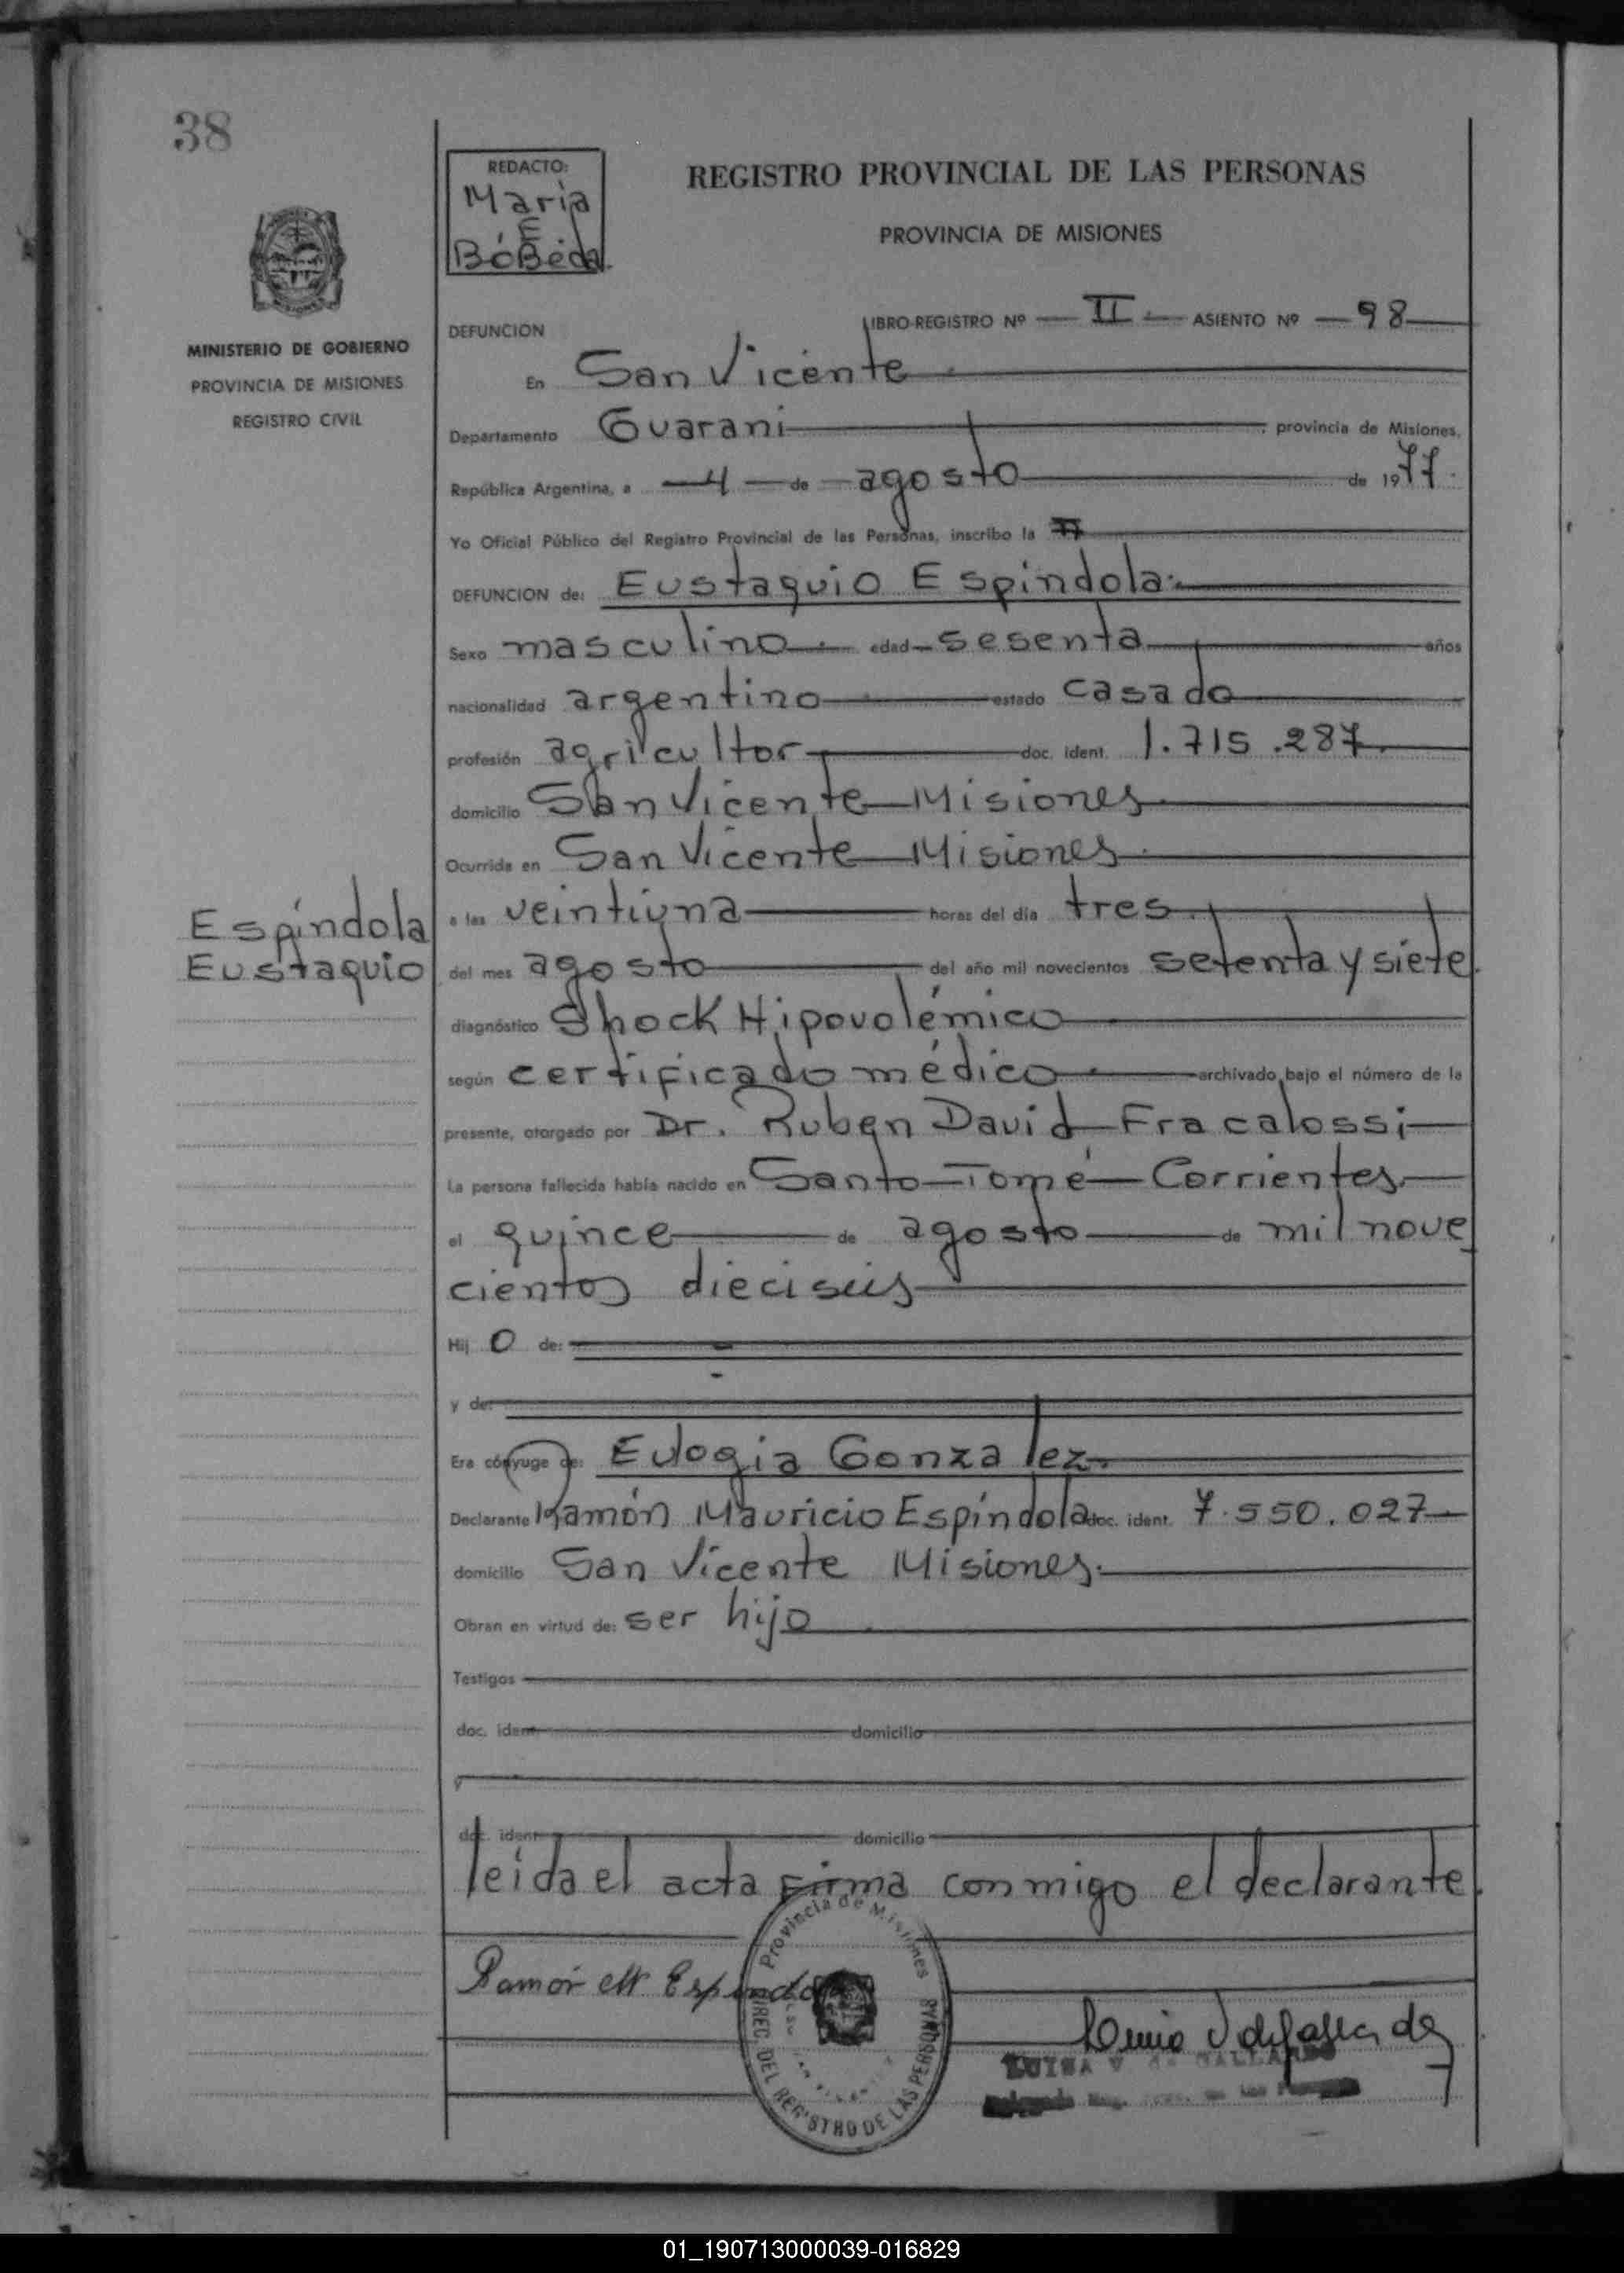 38
REDACTO:
Maria
E.
BóBeda.
REGISTRO PROVINCIAL DE LAS PERSONAS
PROVINCIA DE MISIONES
MINISTERIO DE GOBIERNO
PROVINCIA DE MISIONES
REGISTRO CIVIL
DEFUNCION
LIBRO-REGISTRO Nº II ASIENTO Nº 98
En San Vicente
Departamento Guarani provincia de Misiones,
República Argentina, a 4 de agosto de 1977.
Yo Oficial Público del Registro Provincial de las Personas, inscribo la
DEFUNCION de: Eustaquio Espindola
Sexo masculino edad sesenta años
nacionalidad argentino estado casado
profesión agricultor doc. ident. 1.715.287.
domicilio San Vicente Misiones
Ocurrida en San Vicente Misiones
Espíndola
Eustaquio
a las veintiuna horas del día tres
del mes agosto del año mil novecientos setenta y siete.
diagnóstico Shock Hipovolémico
según certificado médico archivado bajo el número de la
presente, otorgado por Dr. Ruben David Fracalossi
La persona fallecida había nacido en Santo Tomé Corrientes
el quince de agosto de mil nove
cientos dieciseis
Hij o de:
y de:
Era cónyuge de: Eulogia Gonzalez
Declarante Ramón Mauricio Espíndola doc. ident. 7.550.027
domicilio San Vicente Misiones.
Obran en virtud de: ser hijo
Testigos
doc. ident. domicilio
y
doc. ident. domicilio
leida el acta firma conmigo el declarante.
Ramón M Espindola
Provincia de Misiones
DIREC. DEL REGISTRO DE LAS PERSONAS
LUISA V de GALLARDO
01_190713000039-016829